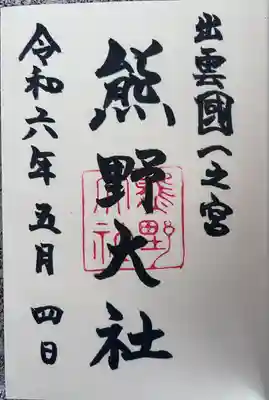 出雲國一之宮
熊野大社
熊野大社
令和六年五月 四日